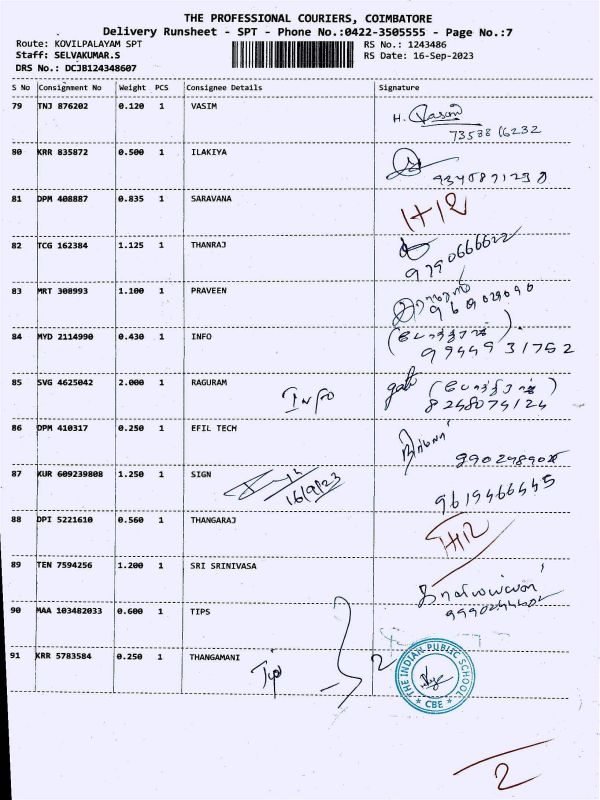 THE PROFESSIONAL COURIERS, COIMBATORE
Delivery Runsheet - SPT - Phone No.:0422-3505555 - Page No.:7
Route: KOVILPALAYAM SPT RS No.: 1243486
Staff: SELVAKUMAR.S RS Date: 16-Sep-2023
DRS No.: DCJB124348607
S No Consignment No Weight PCS Consignee Details Signature
79 TNJ 876202 0.120 1 VASIM H.
80 KRR 835872 0.500 1 ILAKIYA
81 DPM 408887 0.835 1 SARAVANA
82 TCG 162384 1.125 1 THANRAJ 9790666622
83 MRT 308993 1.100 1 PRAVEEN
84 MYD 2114990 0.430 1 INFO
9944931752
85 SVG 4625042 2.000 1 RAGURAM Info gate
8248074124
86 DPM 410317 0.250 1 EFIL TECH
87 KUR 609239808 1.250 1 SIGN 9619466445
16/9/23
88 DPI 5221610 0.560 1 THANGARAJ
89 TEN 7594256 1.200 1 SRI SRINIVASA
90 MAA 103482033 0.600 1 TIPS
91 KRR 5783584 0.250 1 THANGAMANI 2
THE INDIAN PUBLIC SCHOOL
CBE
2